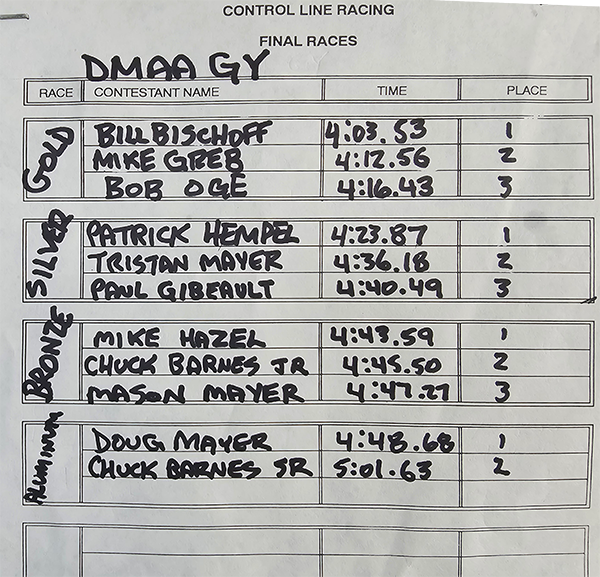 CONTROL LINE RACING
FINAL RACES
DMAA GY
RACE CONTESTANT NAME TIME PLACE
GOLD
BILL BISCHOFF 4:03.53 1
MIKE GREB 4:12.56 2
BOB OGE 4:16.43 3
SILVER
PATRICK HEMPEL 4:23.87 1
TRISTAN MAYER 4:36.18 2
PAUL GIBEAULT 4:40.49 3
BRONZE
MIKE HAZEL 4:43.59 1
CHUCK BARNES JR 4:45.50 2
MASON MAYER 4:47.27 3
ALUMINUM
DOUG MAYER 4:48.68 1
CHUCK BARNES SR 5:01.63 2